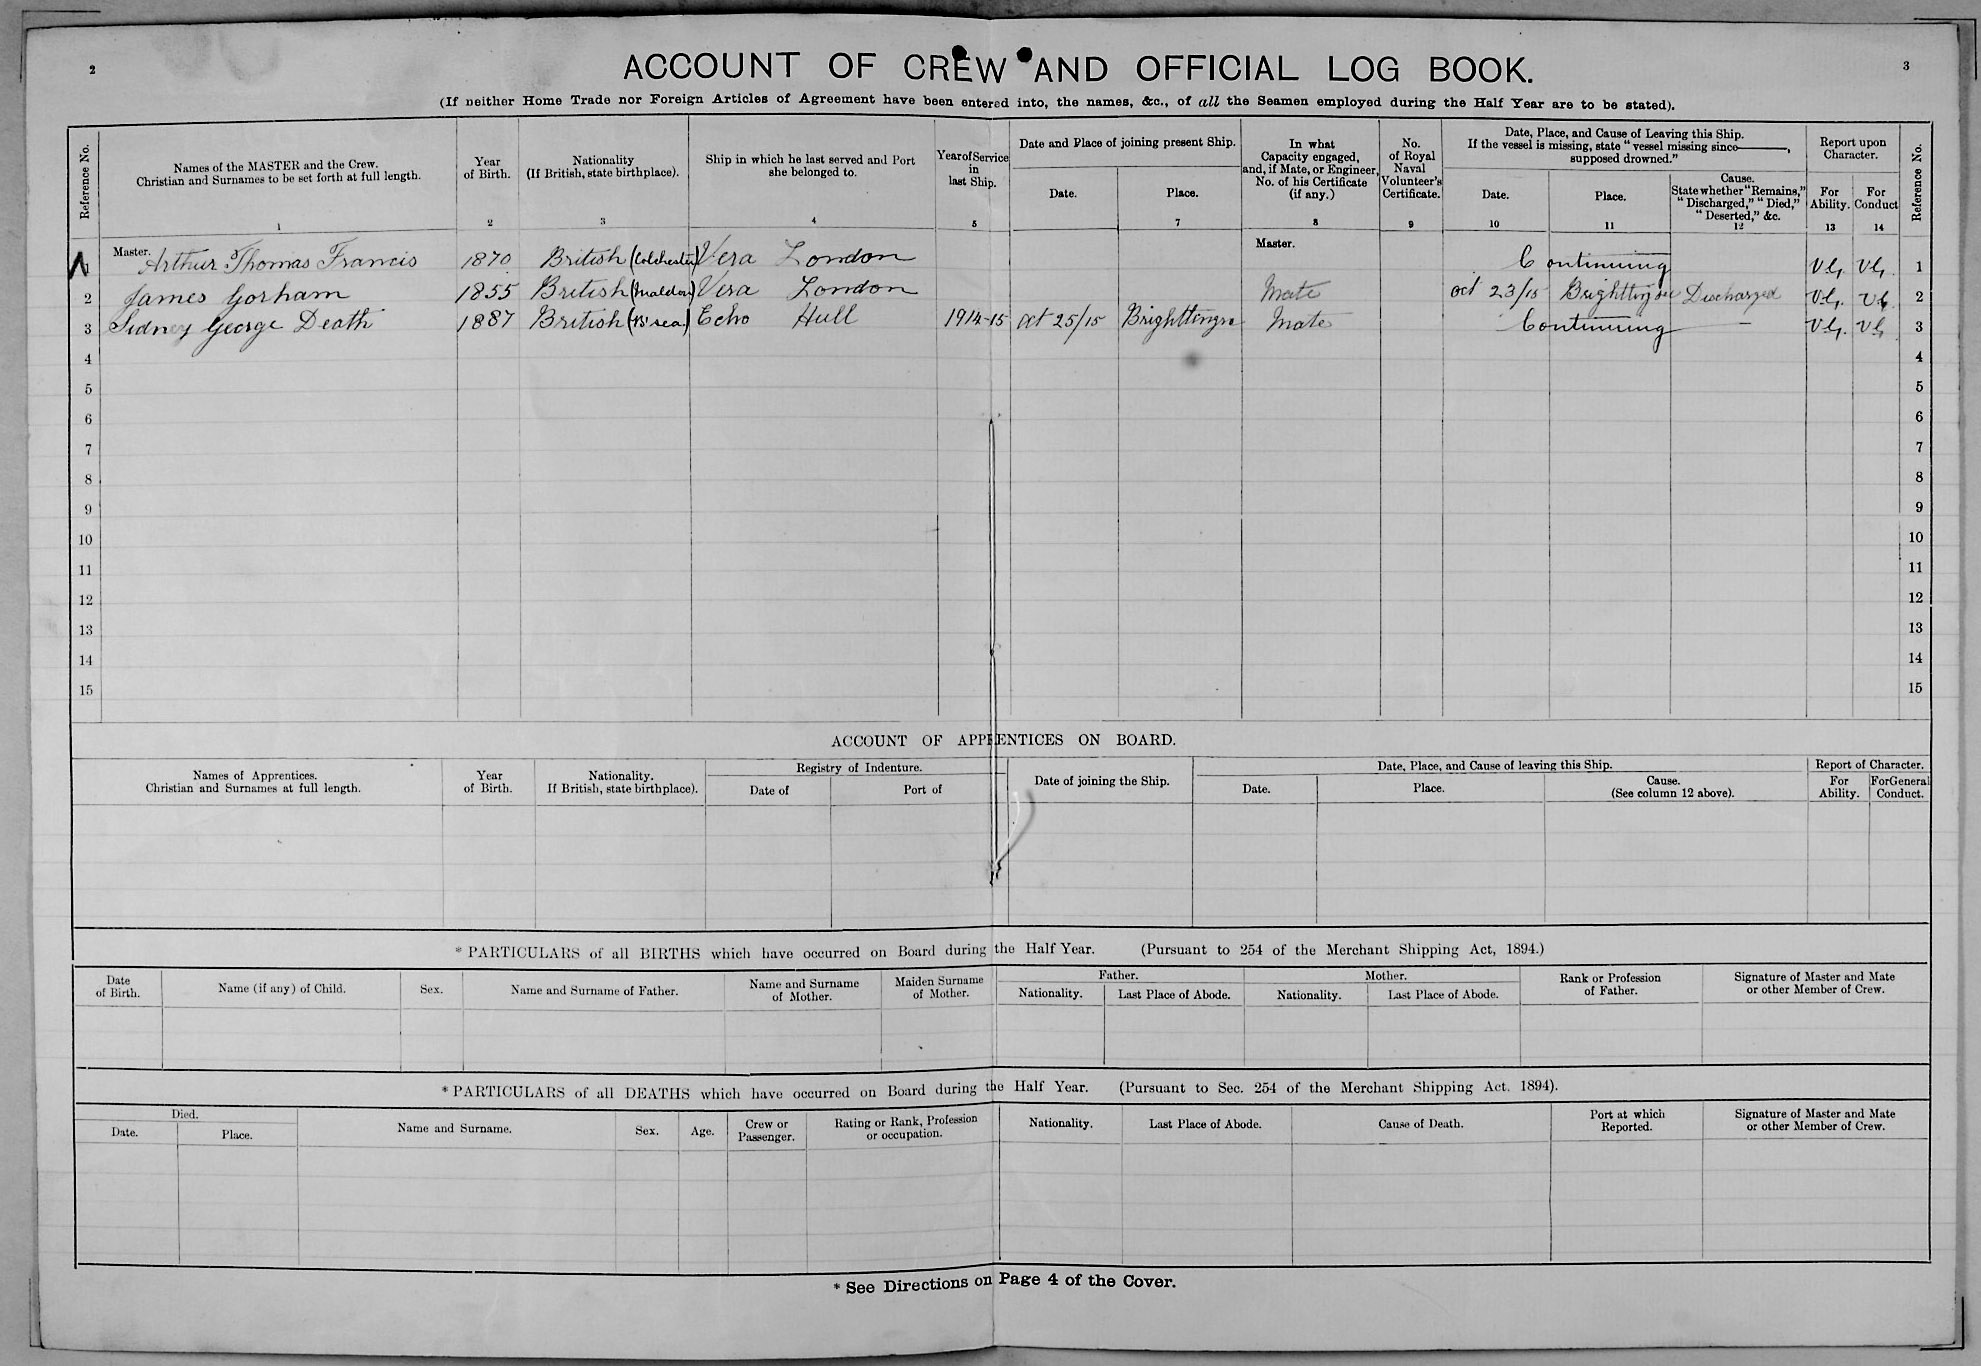 2
ACCOUNT OF CREW AND OFFICIAL LOG BOOK.
3
(If neither Home Trade nor Foreign Articles of Agreement have been entered into, the names, &c., of all the Seamen employed during the Half Year are to be stated).
Reference No.
Names of the MASTER and the Crew.
Christian and Surnames to be set forth at full length.
1
Year
of Birth.
2
Nationality
(If British, state birthplace).
3
Ship in which he last served and Port
she belonged to.
4
Year of Service
in
last Ship.
5
Date and Place of joining present Ship.
Date.
Place.
7
In what
Capacity engaged,
and, if Mate, or Engineer,
No. of his Certificate
(if any.)
8
No.
of Royal
Naval
Volunteer's
Certificate.
9
Date, Place, and Cause of Leaving this Ship.
If the vessel is missing, state "vessel missing since———,
supposed drowned."
Date.
10
Place.
11
Cause.
State whether "Remains,"
"Discharged," "Died,"
"Deserted," &c.
12
Report upon
Character.
For
Ability.
13
For
Conduct
14
Reference No.
1 Master. Arthur Thomas Francis 1870 British (Colchester) Vera London Master. Continuing VG. VG. 1
2 James Gorham 1855 British (Maldon) Vera London Mate Oct 23/15 Brightlingsee Discharged VG. VG 2
3 Sidney George Death 1887 British (B'sea.) Echo Hull 1914-15 Oct 25/15 Mate Continuing — VG. VG 3
4 4
5 5
6 6
7 7
8 8
9 9
10 10
11 11
12 12
13 13
14 14
15 15
ACCOUNT OF APPRENTICES ON BOARD.
Names of Apprentices.
Christian and Surnames at full length.
Year
of Birth.
Nationality.
If British, state birthplace).
Registry of Indenture.
Date of
Port of
Date of joining the Ship.
Date, Place, and Cause of leaving this Ship.
Date.
Place.
Cause.
(See column 12 above).
Report of Character.
For
Ability.
For General
Conduct.
* PARTICULARS of all BIRTHS which have occurred on Board during the Half Year. (Pursuant to 254 of the Merchant Shipping Act, 1894.)
Date
of Birth.
Name (if any) of Child.
Sex.
Name and Surname of Father.
Name and Surname
of Mother.
Maiden Surname
of Mother.
Father.
Nationality.
Last Place of Abode.
Mother.
Nationality.
Last Place of Abode.
Rank or Profession
of Father.
Signature of Master and Mate
or other Member of Crew.
* PARTICULARS of all DEATHS which have occurred on Board during the Half Year. (Pursuant to Sec. 254 of the Merchant Shipping Act. 1894).
Died.
Date.
Place.
Name and Surname.
Sex.
Age.
Crew or
Passenger.
Rating or Rank, Profession
or occupation.
Nationality.
Last Place of Abode.
Cause of Death.
Port at which
Reported.
Signature of Master and Mate
or other Member of Crew.
* See Directions on Page 4 of the Cover.